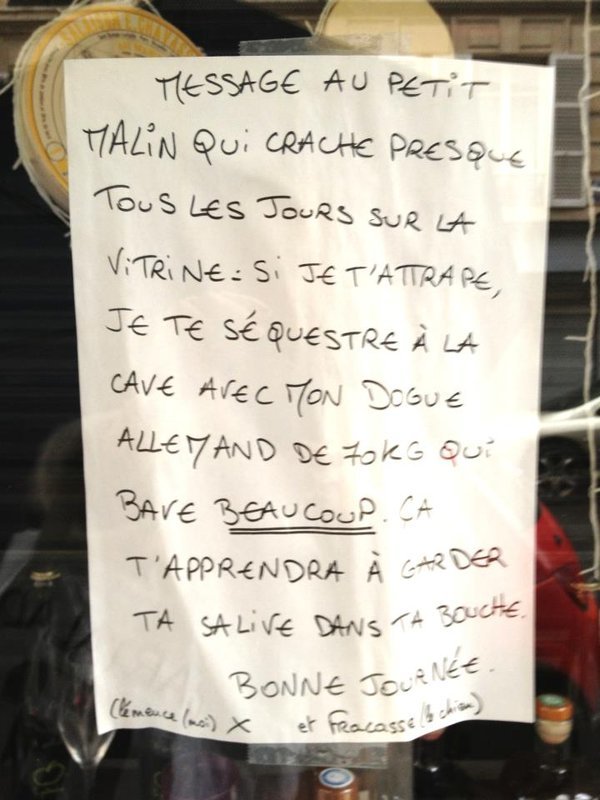 MESSAGE AU PETiT
MALIN QUi CRACHE PRESQUE
TOUS LES JOURS SUR LA
ViTRiNE : Si JE T'ATTRAPE,
JE TE SÉQUESTRE À LA
CAVE AVEC MON DOGUE
ALLEMAND DE 70KG QUi
BAVE BEAUCOUP. ÇA
T'APPRENDRA À GARDER
TA SALiVE DANS TA BOUCHE.
BONNE JOURNÉE.
(Clémence (moi) X et FRacasse (le chien)